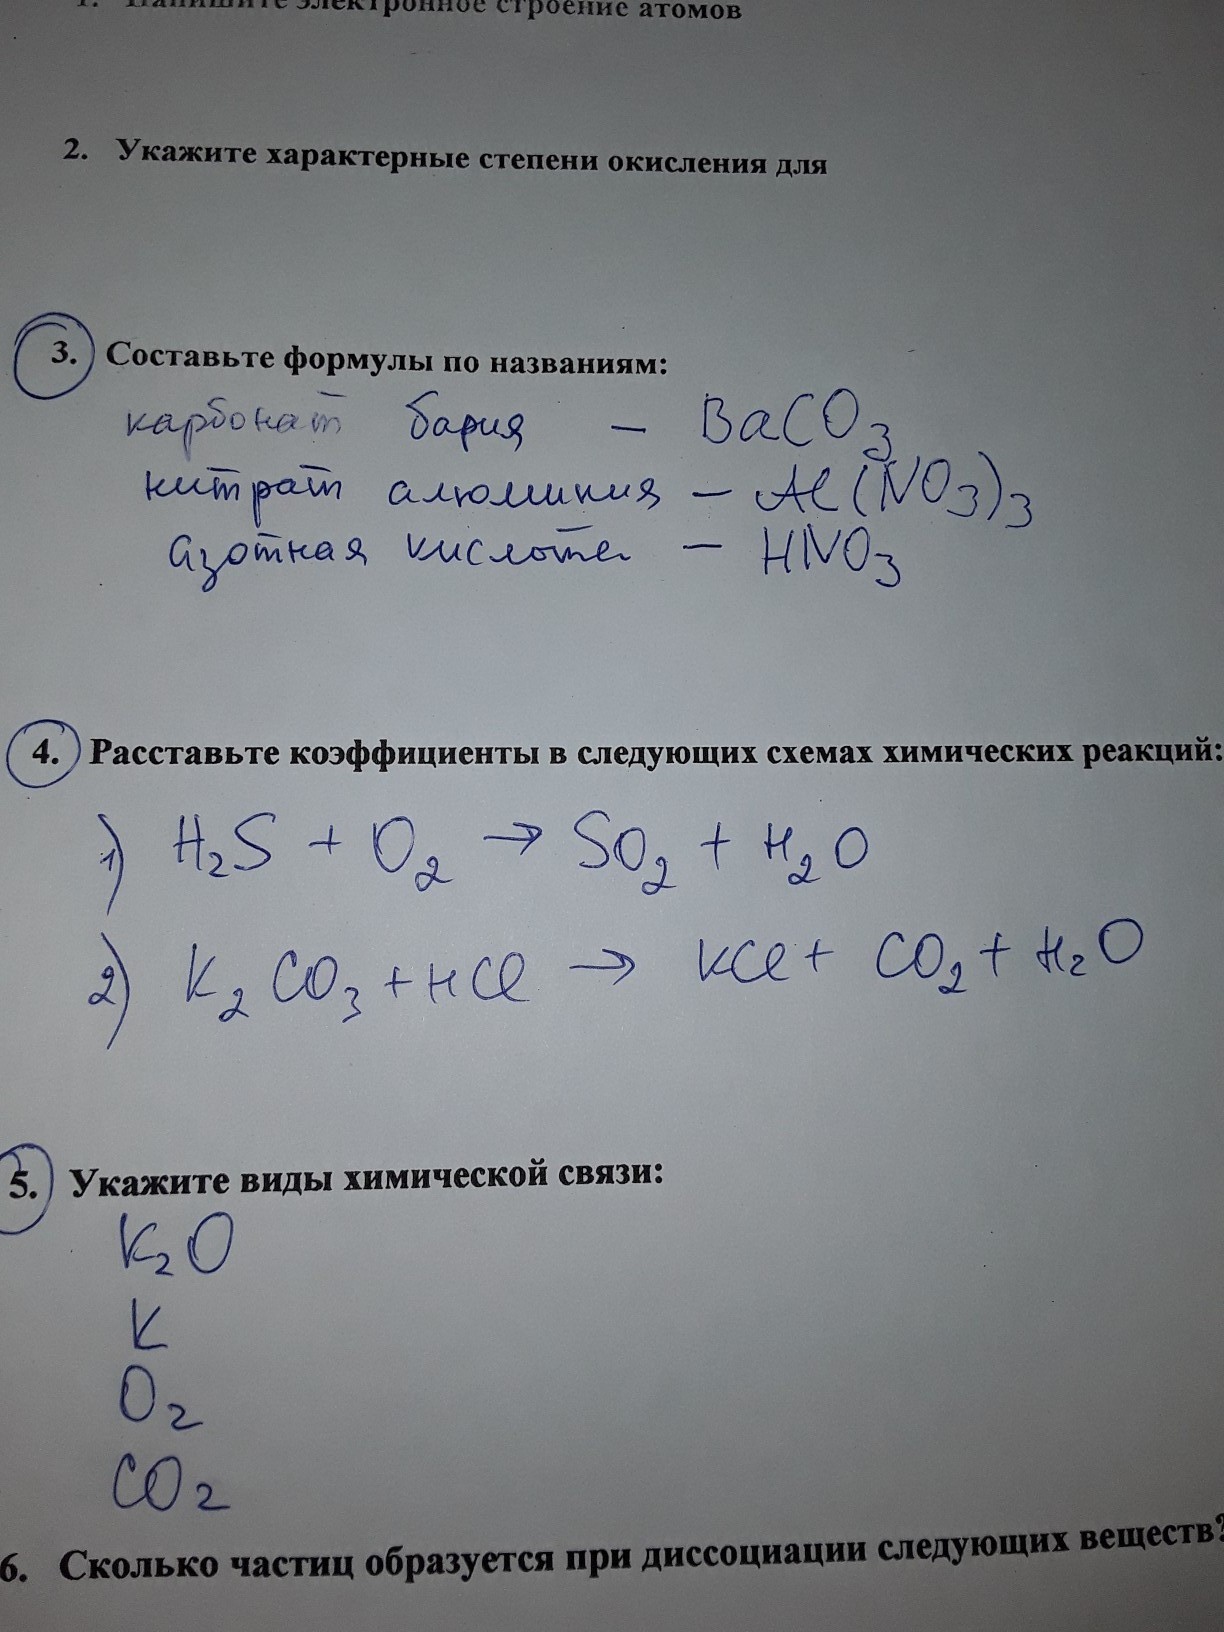 1. Напишите электронное строение атомов
2. Укажите характерные степени окисления для
3. Составьте формулы по названиям:
карбонат бария – BaCO3
нитрат алюминия – Al(NO3)3
азотная кислота – HNO3
4. Расставьте коэффициенты в следующих схемах химических реакций:
1) H2S + O2 → SO2 + H2O
2) K2CO3 + HCl → KCl + CO2 + H2O
5. Укажите виды химической связи:
K2O
K
O2
CO2
6. Сколько частиц образуется при диссоциации следующих веществ?